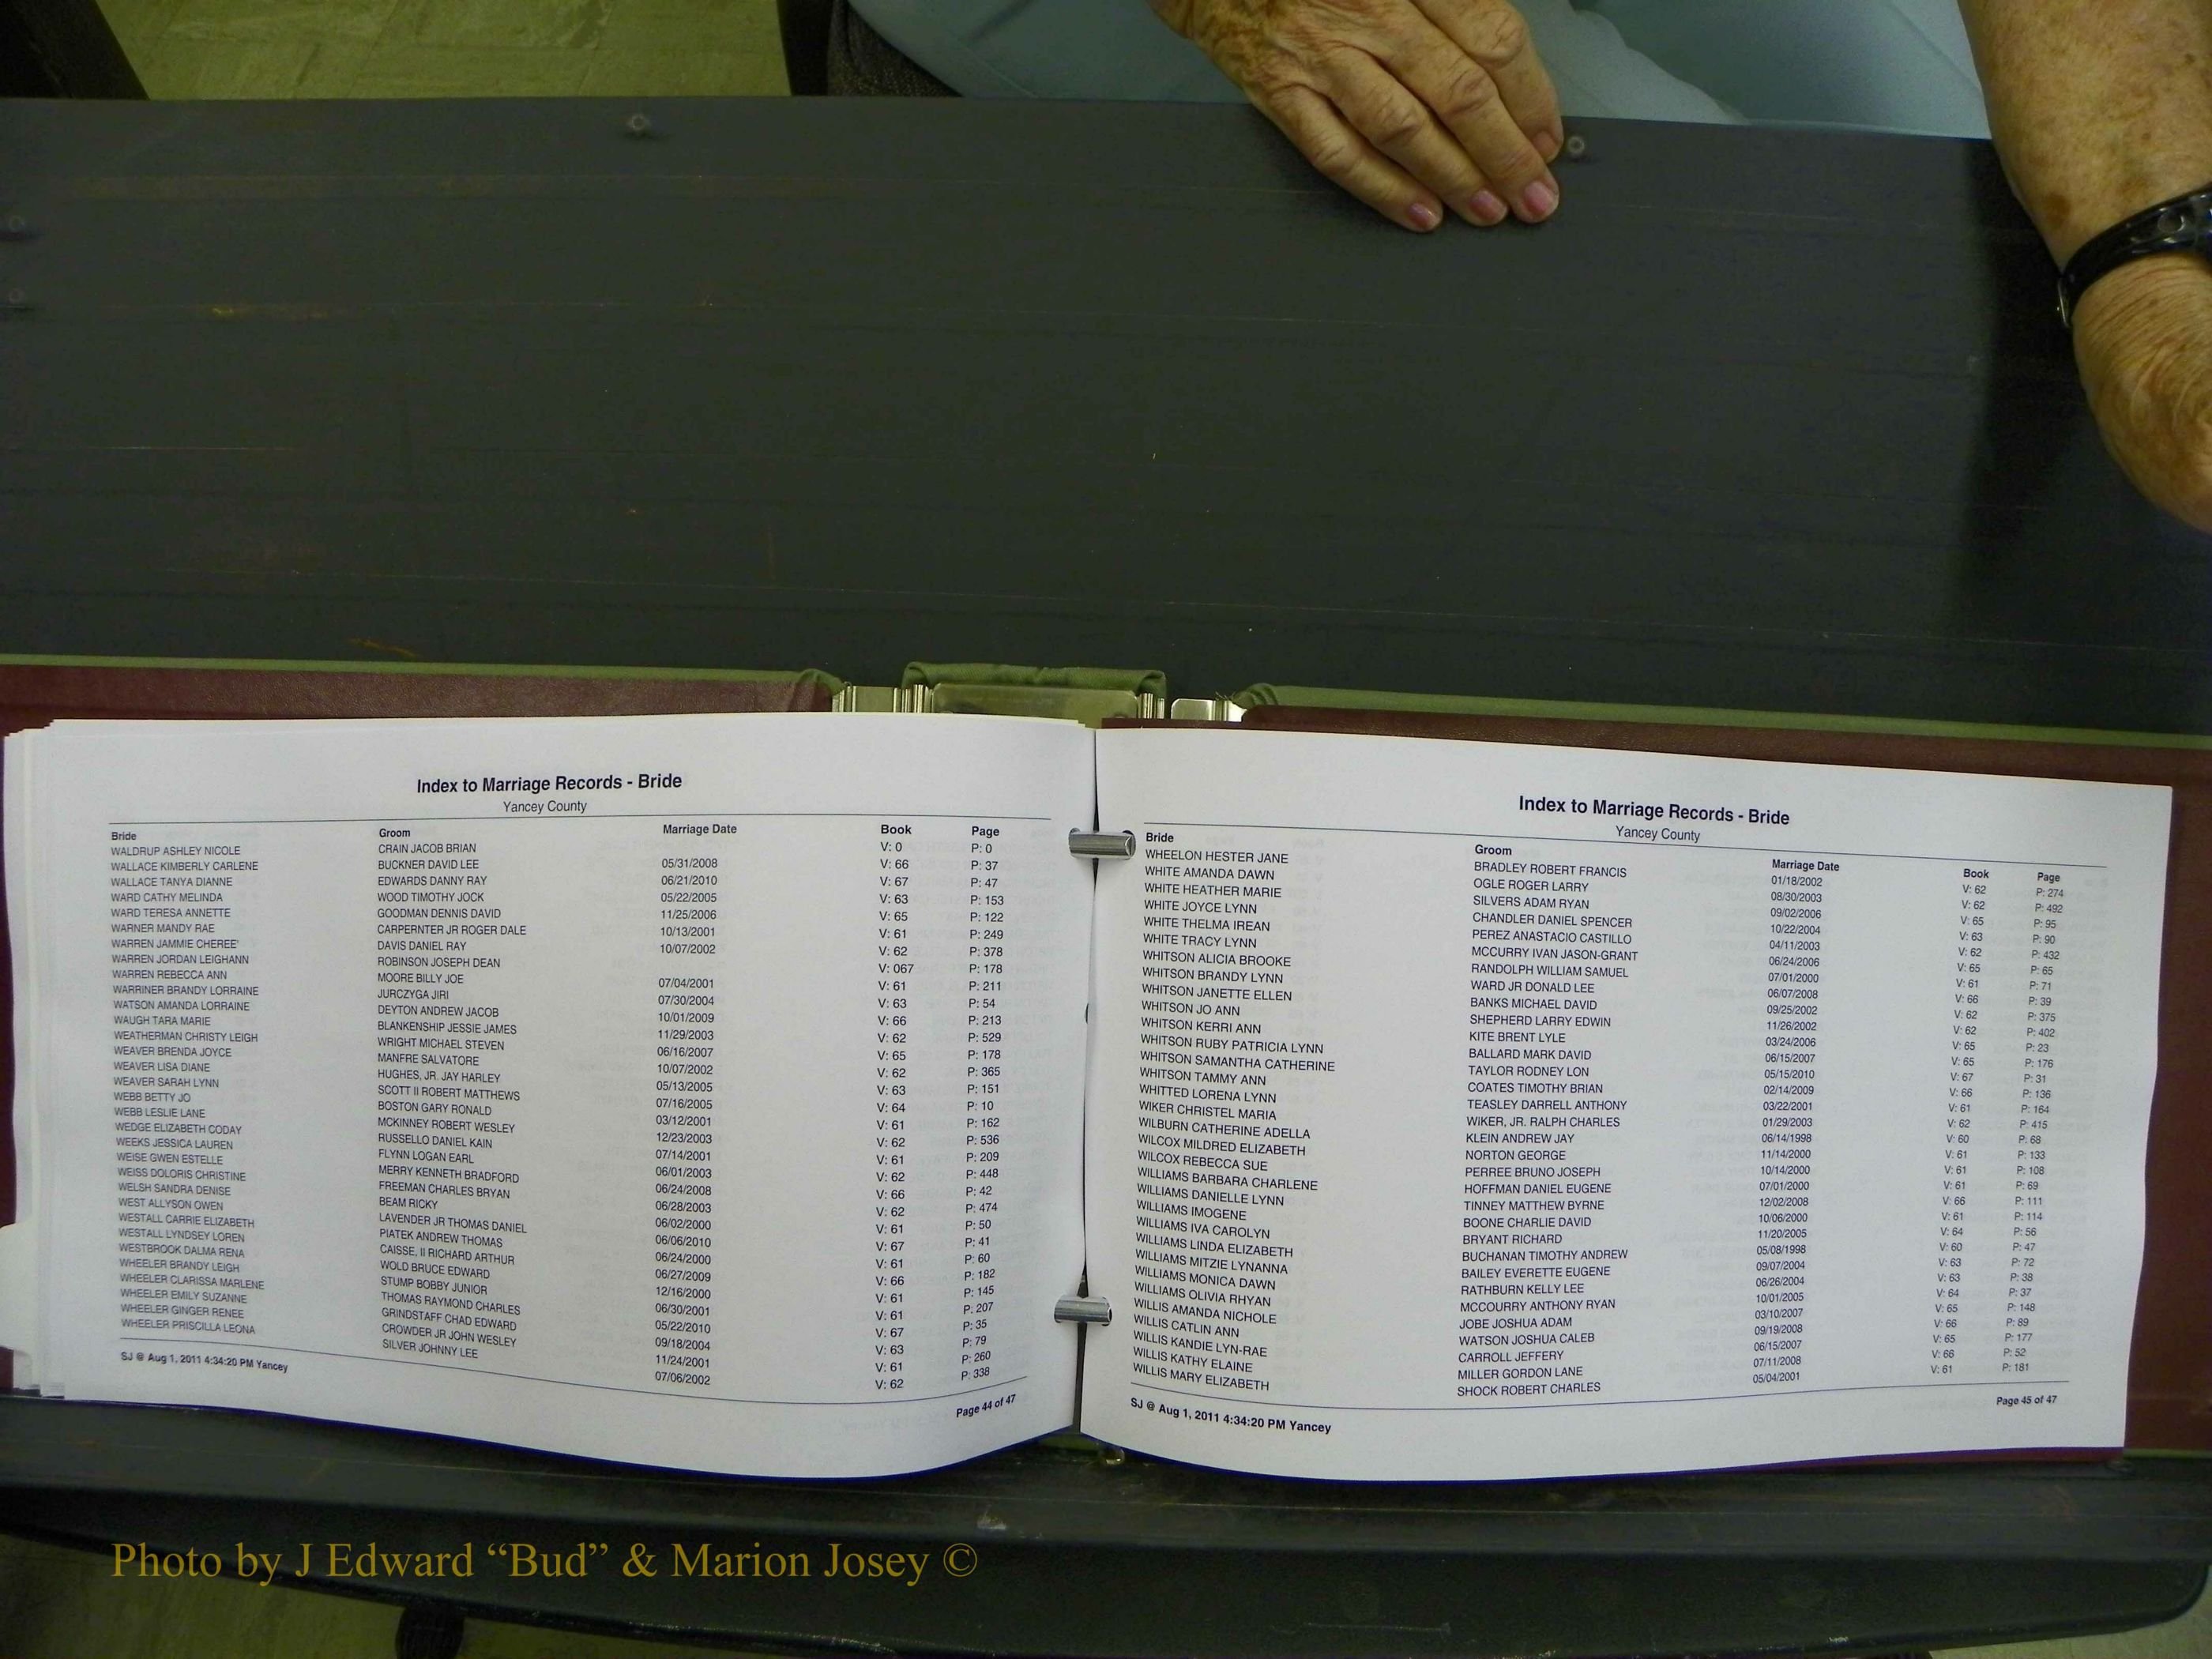 Index to Marriage Records - Bride
Yancey County
Bride Groom Marriage Date Book Page
WALDRUP ASHLEY NICOLE CRAIN JACOB BRIAN V: 0 P: 0
WALLACE KIMBERLY CARLENE BUCKNER DAVID LEE 05/31/2008 V: 66 P: 37
WALLACE TANYA DIANNE EDWARDS DANNY RAY 06/21/2010 V: 67 P: 47
WARD CATHY MELINDA WOOD TIMOTHY JOCK 05/22/2005 V: 63 P: 153
WARD TERESA ANNETTE GOODMAN DENNIS DAVID 11/25/2006 V: 65 P: 122
WARNER MANDY RAE CARPERNTER JR ROGER DALE 10/13/2001 V: 61 P: 249
WARREN JAMMIE CHEREE' DAVIS DANIEL RAY 10/07/2002 V: 62 P: 378
WARREN JORDAN LEIGHANN ROBINSON JOSEPH DEAN V: 067 P: 178
WARREN REBECCA ANN MOORE BILLY JOE 07/04/2001 V: 61 P: 211
WARRINER BRANDY LORRAINE JURCZYGA JIRI 07/30/2004 V: 63 P: 54
WATSON AMANDA LORRAINE DEYTON ANDREW JACOB 10/01/2009 V: 66 P: 213
WAUGH TARA MARIE BLANKENSHIP JESSIE JAMES 11/29/2003 V: 62 P: 529
WEATHERMAN CHRISTY LEIGH WRIGHT MICHAEL STEVEN 06/16/2007 V: 65 P: 178
WEAVER BRENDA JOYCE MANFRE SALVATORE 10/07/2002 V: 62 P: 365
WEAVER LISA DIANE HUGHES, JR. JAY HARLEY 05/13/2005 V: 63 P: 151
WEAVER SARAH LYNN SCOTT II ROBERT MATTHEWS 07/16/2005 V: 64 P: 10
WEBB BETTY JO BOSTON GARY RONALD 03/12/2001 V: 61 P: 162
WEBB LESLIE LANE MCKINNEY ROBERT WESLEY 12/23/2003 V: 62 P: 536
WEDGE ELIZABETH CODAY RUSSELLO DANIEL KAIN 07/14/2001 V: 61 P: 209
WEEKS JESSICA LAUREN FLYNN LOGAN EARL 06/01/2003 V: 62 P: 448
WEISE GWEN ESTELLE MERRY KENNETH BRADFORD 06/24/2008 V: 66 P: 42
WEISS DOLORIS CHRISTINE FREEMAN CHARLES BRYAN 06/28/2003 V: 62 P: 474
WELSH SANDRA DENISE BEAM RICKY 06/02/2000 V: 61 P: 50
WEST ALLYSON OWEN LAVENDER JR THOMAS DANIEL 06/06/2010 V: 67 P: 41
WESTALL CARRIE ELIZABETH PIATEK ANDREW THOMAS 06/24/2000 V: 61 P: 60
WESTALL LYNDSEY LOREN CAISSE, II RICHARD ARTHUR 06/27/2009 V: 66 P: 182
WESTBROOK DALMA RENA WOLD BRUCE EDWARD 12/16/2000 V: 61 P: 145
WHEELER BRANDY LEIGH STUMP BOBBY JUNIOR 06/30/2001 V: 61 P: 207
WHEELER CLARISSA MARLENE THOMAS RAYMOND CHARLES 05/22/2010 V: 67 P: 35
WHEELER EMILY SUZANNE GRINDSTAFF CHAD EDWARD 09/18/2004 V: 63 P: 79
WHEELER GINGER RENEE CROWDER JR JOHN WESLEY 11/24/2001 V: 61 P: 260
WHEELER PRISCILLA LEONA SILVER JOHNNY LEE 07/06/2002 V: 62 P: 338
SJ @ Aug 1, 2011 4:34:20 PM Yancey Page 44 of 47
Index to Marriage Records - Bride
Yancey County
Bride Groom Marriage Date Book Page
WHEELON HESTER JANE BRADLEY ROBERT FRANCIS 01/18/2002 V: 62 P: 274
WHITE AMANDA DAWN OGLE ROGER LARRY 08/30/2003 V: 62 P: 492
WHITE HEATHER MARIE SILVERS ADAM RYAN 09/02/2006 V: 65 P: 95
WHITE JOYCE LYNN CHANDLER DANIEL SPENCER 10/22/2004 V: 63 P: 90
WHITE THELMA IREAN PEREZ ANASTACIO CASTILLO 04/11/2003 V: 62 P: 432
WHITE TRACY LYNN MCCURRY IVAN JASON-GRANT 06/24/2006 V: 65 P: 65
WHITSON ALICIA BROOKE RANDOLPH WILLIAM SAMUEL 07/01/2000 V: 61 P: 71
WHITSON BRANDY LYNN WARD JR DONALD LEE 06/07/2008 V: 66 P: 39
WHITSON JANETTE ELLEN BANKS MICHAEL DAVID 09/25/2002 V: 62 P: 375
WHITSON JO ANN SHEPHERD LARRY EDWIN 11/26/2002 V: 62 P: 402
WHITSON KERRI ANN KITE BRENT LYLE 03/24/2006 V: 65 P: 23
WHITSON RUBY PATRICIA LYNN BALLARD MARK DAVID 06/15/2007 V: 65 P: 176
WHITSON SAMANTHA CATHERINE TAYLOR RODNEY LON 05/15/2010 V: 67 P: 31
WHITSON TAMMY ANN COATES TIMOTHY BRIAN 02/14/2009 V: 66 P: 136
WHITTED LORENA LYNN TEASLEY DARRELL ANTHONY 03/22/2001 V: 61 P: 164
WIKER CHRISTEL MARIA WIKER, JR. RALPH CHARLES 01/29/2003 V: 62 P: 415
WILBURN CATHERINE ADELLA KLEIN ANDREW JAY 06/14/1998 V: 60 P: 68
WILCOX MILDRED ELIZABETH NORTON GEORGE 11/14/2000 V: 61 P: 133
WILCOX REBECCA SUE PERREE BRUNO JOSEPH 10/14/2000 V: 61 P: 108
WILLIAMS BARBARA CHARLENE HOFFMAN DANIEL EUGENE 07/01/2000 V: 61 P: 69
WILLIAMS DANIELLE LYNN TINNEY MATTHEW BYRNE 12/02/2008 V: 66 P: 111
WILLIAMS IMOGENE BOONE CHARLIE DAVID 10/06/2000 V: 61 P: 114
WILLIAMS IVA CAROLYN BRYANT RICHARD 11/20/2005 V: 64 P: 56
WILLIAMS LINDA ELIZABETH BUCHANAN TIMOTHY ANDREW 05/08/1998 V: 60 P: 47
WILLIAMS MITZIE LYNANNA BAILEY EVERETTE EUGENE 09/07/2004 V: 63 P: 72
WILLIAMS MONICA DAWN RATHBURN KELLY LEE 06/26/2004 V: 63 P: 38
WILLIAMS OLIVIA RHYAN MCCOURRY ANTHONY RYAN 10/01/2005 V: 64 P: 37
WILLIS AMANDA NICHOLE JOBE JOSHUA ADAM 03/10/2007 V: 65 P: 148
WILLIS CATLIN ANN WATSON JOSHUA CALEB 09/19/2008 V: 66 P: 89
WILLIS KANDIE LYN-RAE CARROLL JEFFERY 06/15/2007 V: 65 P: 177
WILLIS KATHY ELAINE MILLER GORDON LANE 07/11/2008 V: 66 P: 52
WILLIS MARY ELIZABETH SHOCK ROBERT CHARLES 05/04/2001 V: 61 P: 181
SJ @ Aug 1, 2011 4:34:20 PM Yancey Page 45 of 47
Photo by J Edward “Bud” & Marion Josey ©